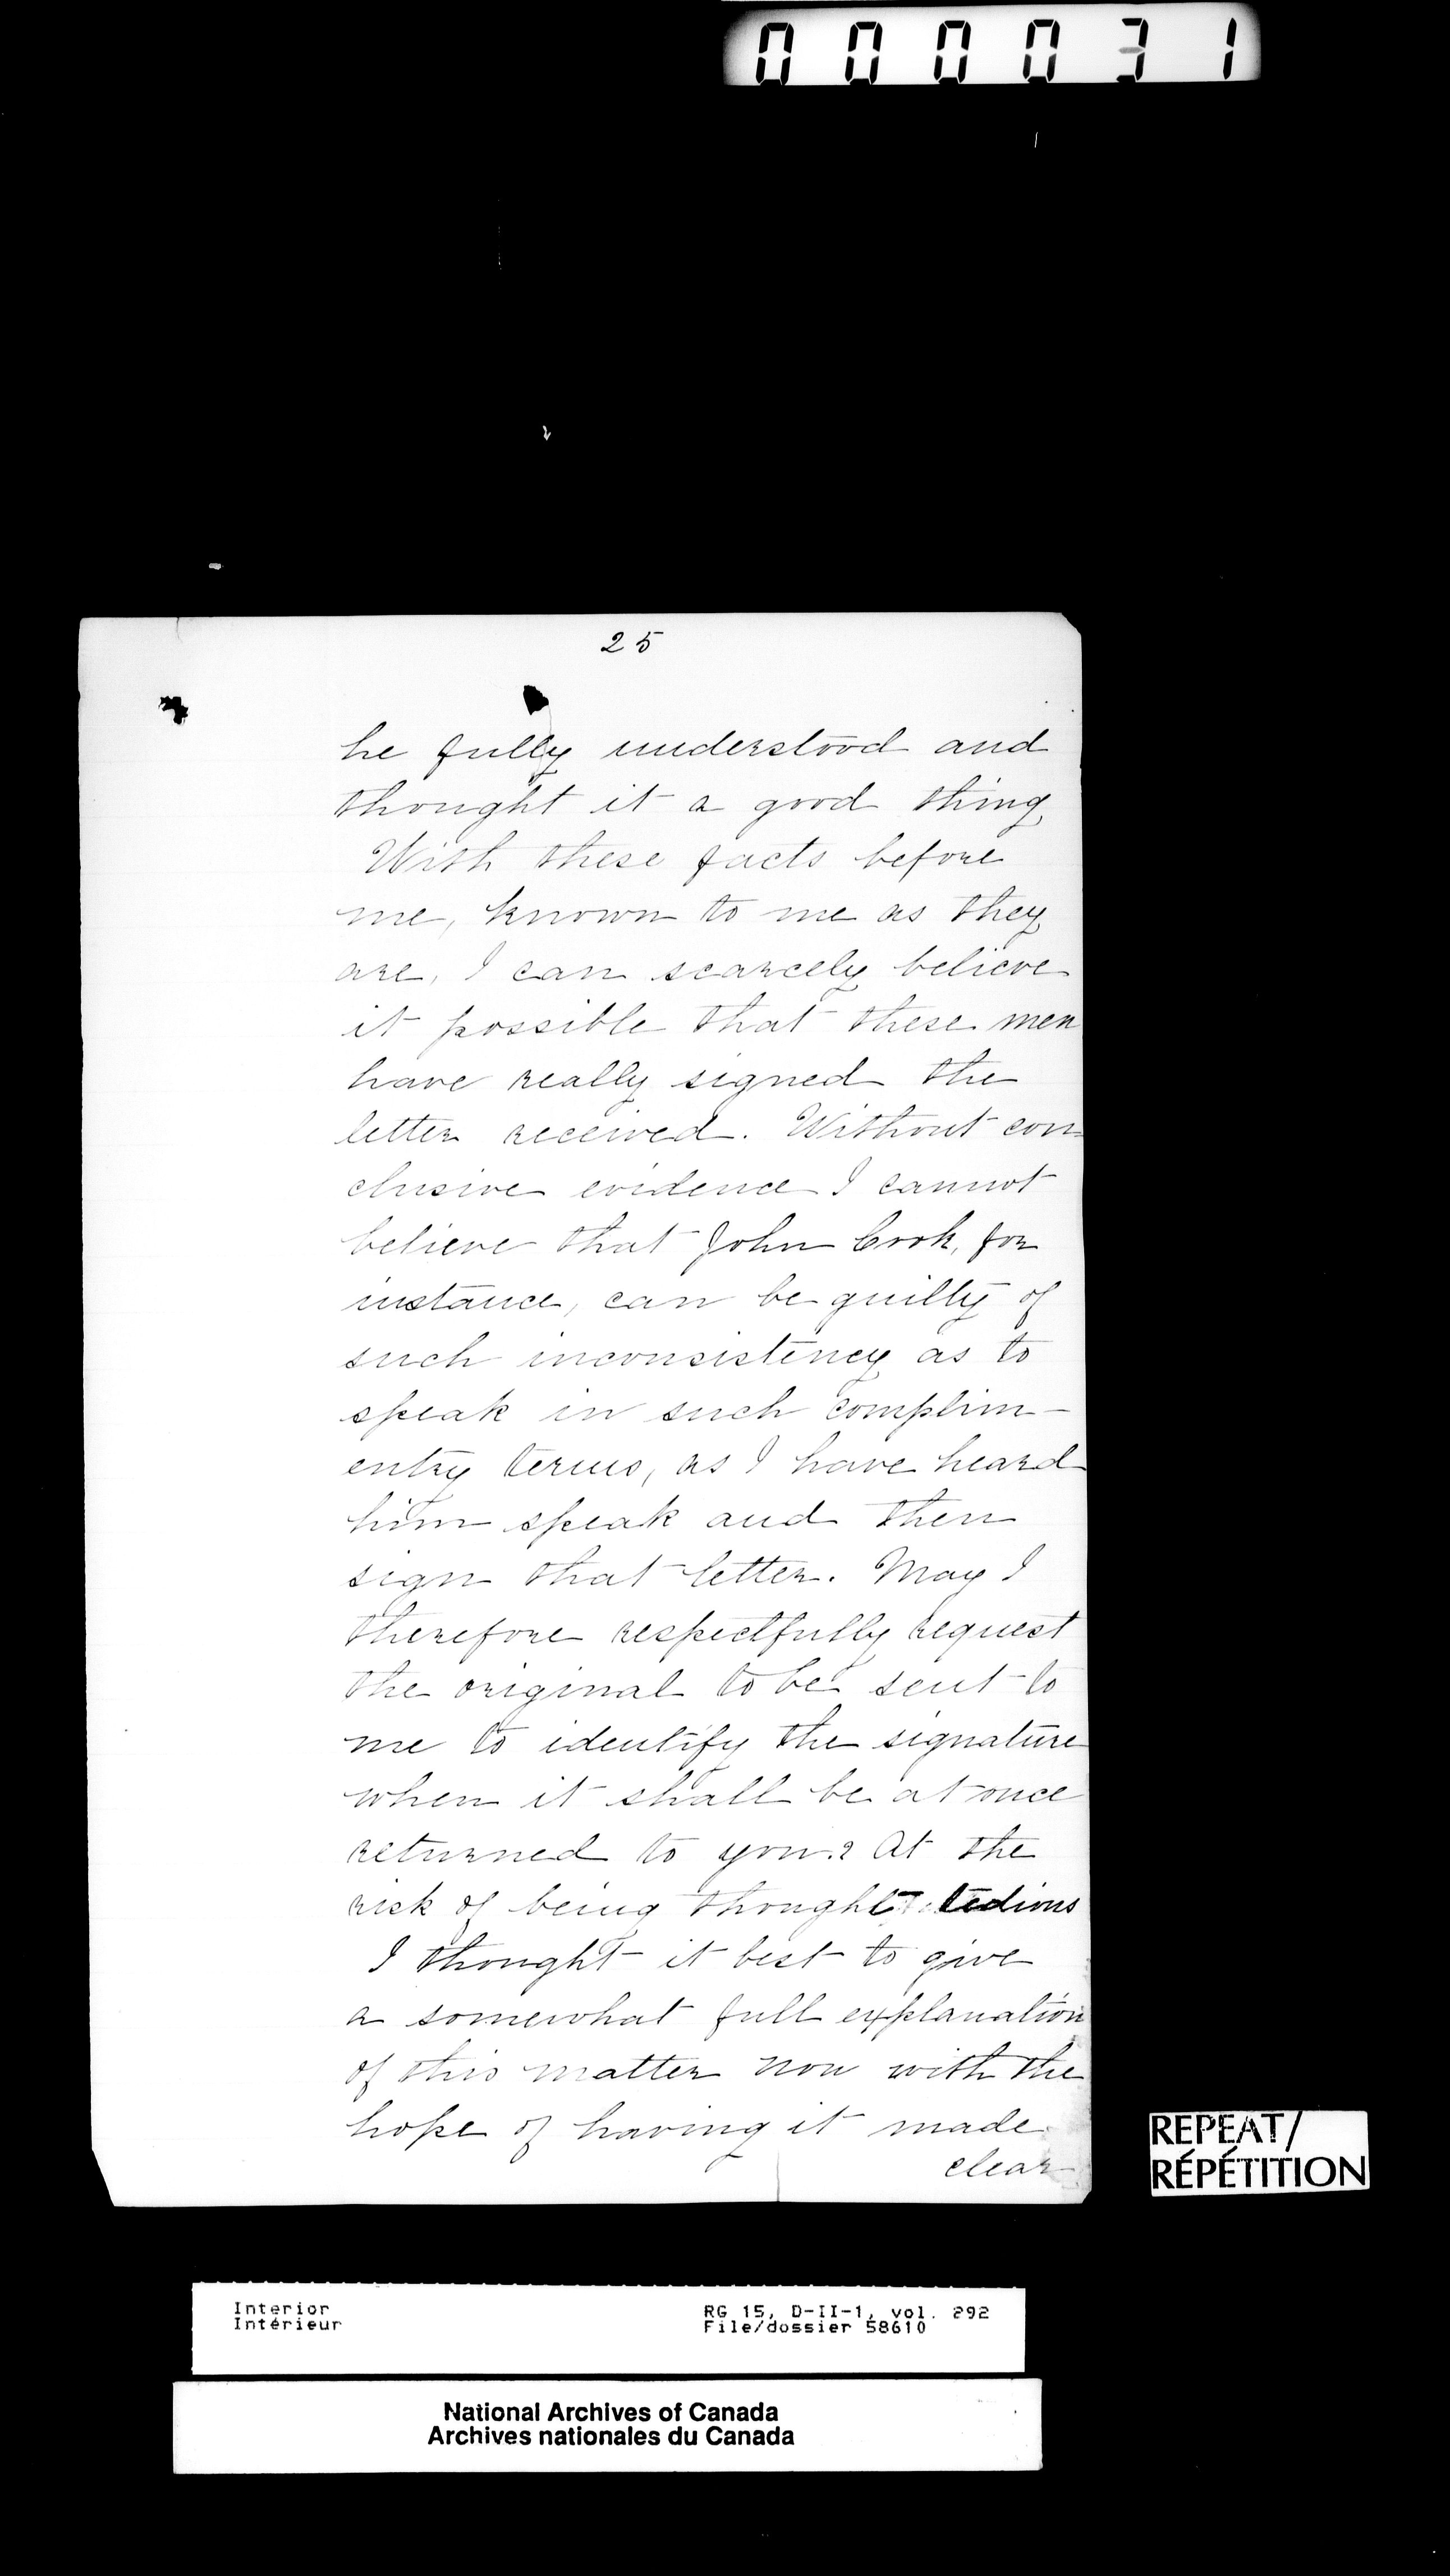 000031
25
he fully understood and
thought it a good thing
With these facts before
me, known to me as they
are, I can scarcely believe
it possible that these men
have really signed the
letter received. Without con
clusive evidence I cannot
believe that John Cook, for
instance, can be guilty of
such inconsistency as to
speak in such complim-
entry terms, as I have heard
him speak and then
sign that letter. May I
therefore respectfully request
the original to be sent to
me to identify the signature
when it shall be at once
returned to you? At the
risk of being thought tedious
I thought it best to give
a somewhat full explanation
of this matter now with the
hope of having it made
clear
REPEAT/
RÉPÉTITION
Interior
Intérieur
RG 15, D-II-1, vol. 292
File/dossier 58610
National Archives of Canada
Archives nationales du Canada